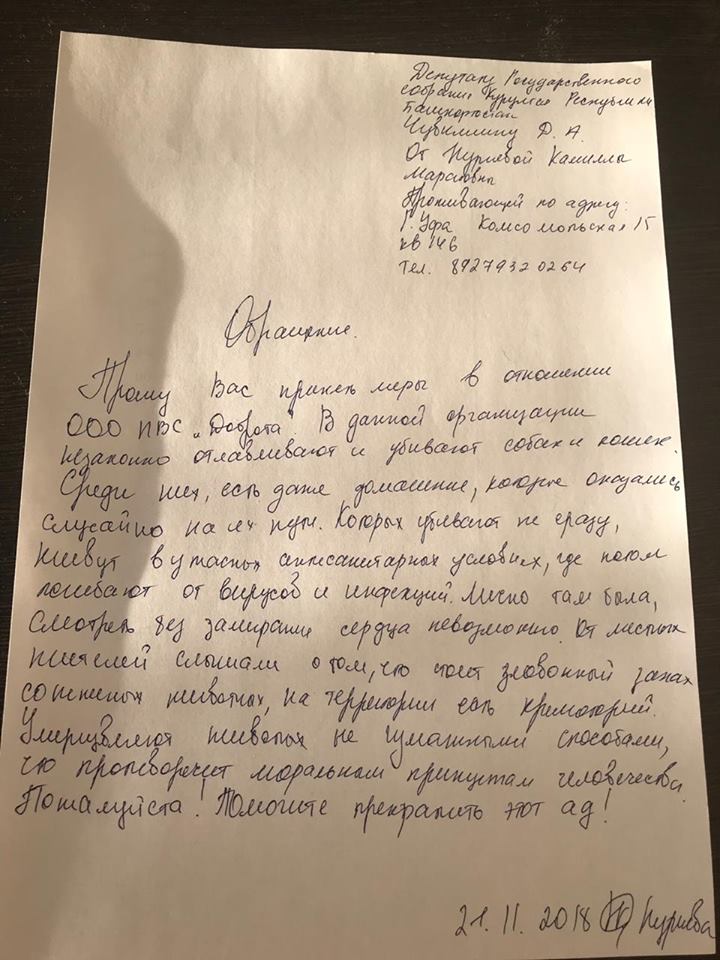 Депутату Государственного
собрания Курултая Республики
Башкортостан
Чувилину Д. А.
От Нуриевой Камиллы
Маратовны
Проживающий по адресу:
Г. Уфа Комсомольская 15
кв 146
Тел. 89279320264
Обращение.
Прошу Вас принять меры в отношении
ООО ПВС „Доброта". В данной организации
незаконно отлавливают и убивают собак и кошек.
Среди них, есть даже домашние, которые оказались
случайно на их пути. Которых убивают не сразу,
живут в ужасных антисанитарных условиях, где потом
погибают от вирусов и инфекций. Лично там была,
смотреть без замирание сердца невозможно. От местных
жителей слышали о том, что стоит зловонный запах
сожженых животных, на территории есть крематорий.
Умерщвляют животных не гуманными способами,
что противоречит моральным принципам человечества.
Пожалуйста! Помогите прекратить этот ад!
21. 11. 2018 Нуриева